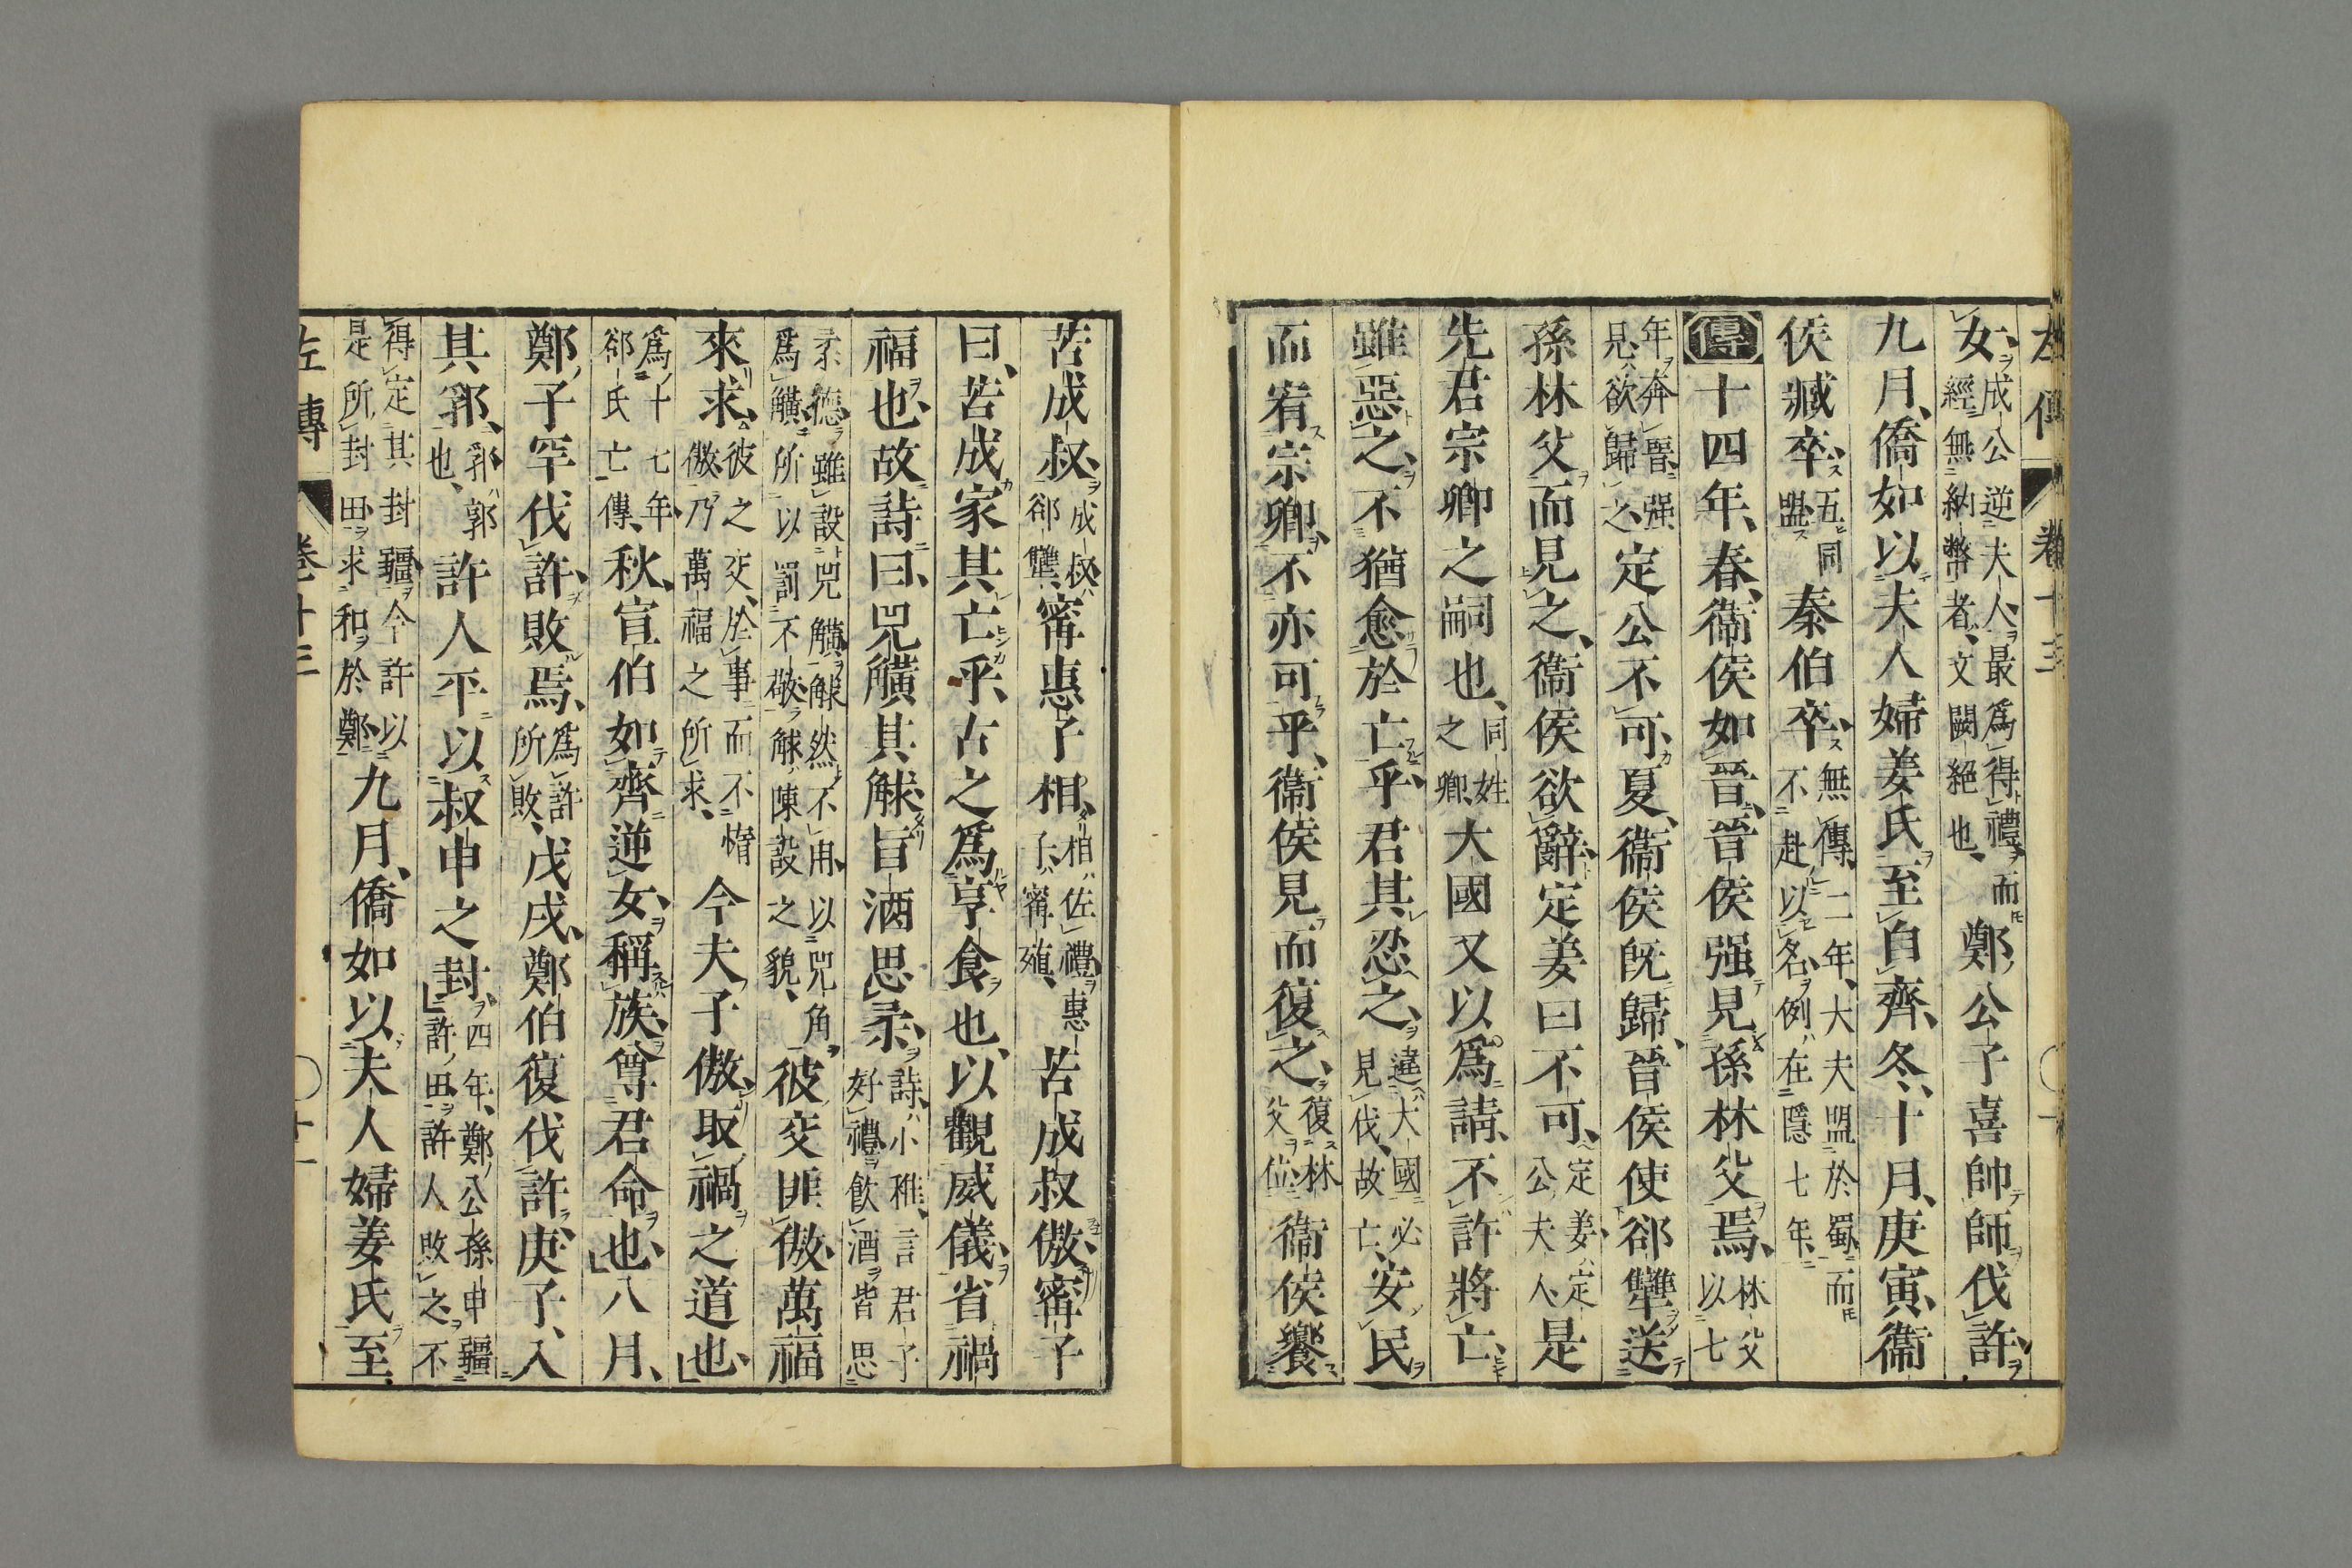 左傳 卷十三
女、成公逆夫人、最爲得禮、而經無納幣者、文闕絕也、鄭公子喜帥師伐許、
九月、僑如以夫人婦姜氏至自齊、冬、十月、庚寅、衞
侯臧卒、五同盟秦伯卒、無傳、二年、大夫盟於蜀、而不赴以名、例在隱七年、
傳十四年、春、衞侯如晉、晉侯强見孫林父焉、林父以七
年奔晉、强見、欲歸之、定公不可、夏、衞侯旣歸、晉侯使郤犨送
孫林父而見之、衞侯欲辭、定姜曰不可、定姜、定公夫人、是
先君宗卿之嗣也、同姓之卿、大國又以爲請、不許將亡、
雖惡之、不猶愈於亡乎、君其忍之、違大國必見伐、故亡、安民
而宥宗卿、不亦可乎、衞侯見而復之、復林父位衞侯饗
苦成叔、成叔郤犨、甯惠子相、相佐禮惠子、甯殖、苦成叔傲、甯子
曰、苦成家其亡乎、古之爲享食也、以觀威儀、省禍
福也、故詩曰、兕觵其觩旨酒思柔、詩小雅、言君子好禮飲酒皆思
柔德、雖設兕觵、觩然不用、以兕角爲觵、所以罰不敬、觩陳設之貌、彼交匪傲、萬福
來求、彼之交、於事而不惰傲、乃萬福之所求、今夫子傲、取禍之道也、
爲十七年、郤氏亡傳、秋、宣伯如齊逆女、稱族、尊君命也、八月、
鄭子罕伐許、敗焉、爲許所敗、戊戌、鄭伯復伐許、庚子、入
其郛、郛郭也、許人平以叔申之封、四年、鄭公孫申疆許田、許人敗之、不
得定其封疆、今許以是所封田、求和於鄭九月、僑如以夫人婦姜氏至
左傳 卷十三 十一